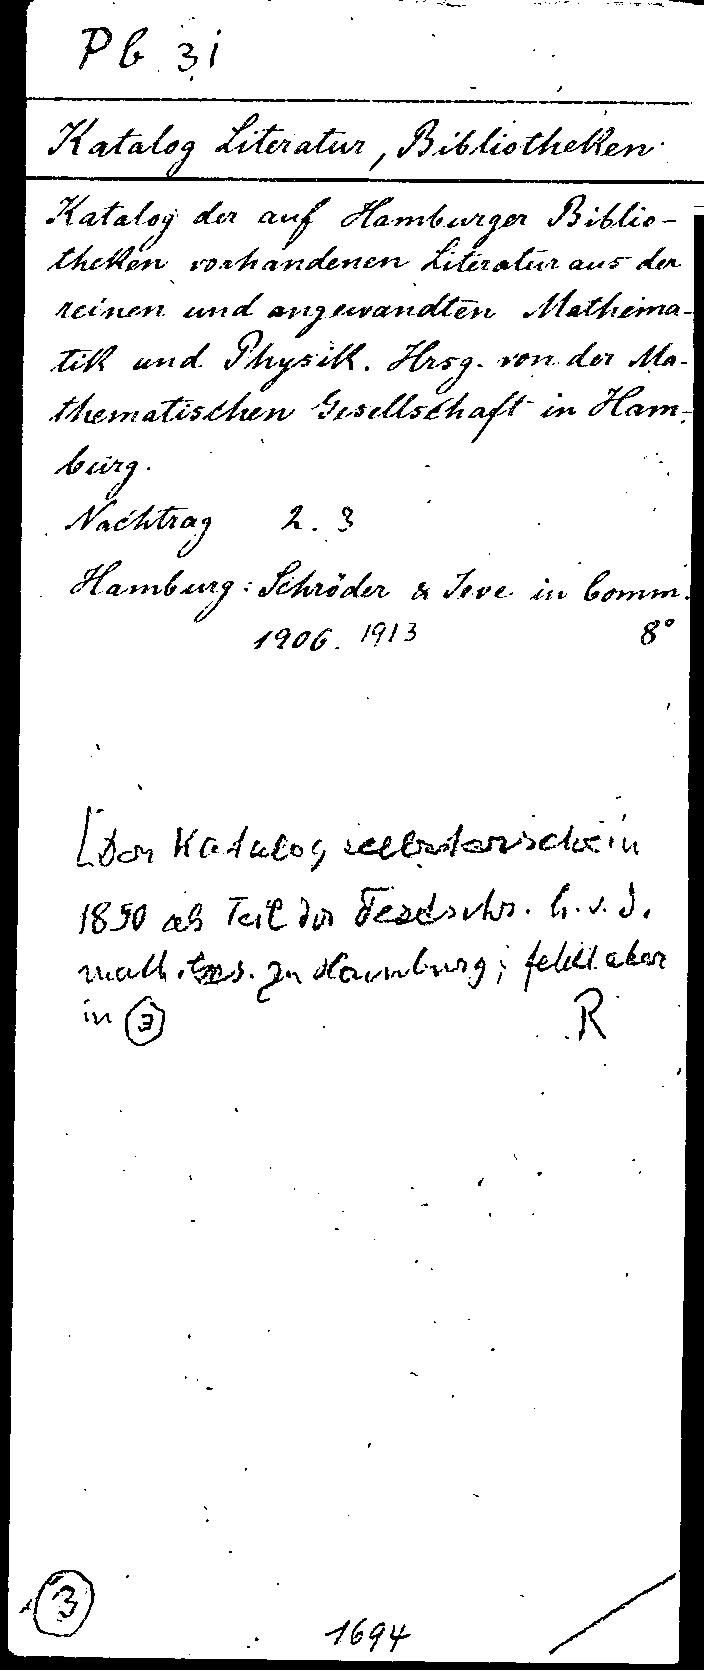 Pb 3i
Katalog Literatur, Bibliotheken
Katalog der auf Hamburger Biblio-
theken vorhandenen Literatur aus der
reinen und angewandten Mathema-
tik und Physik. Hrsg. von der Ma-
thematischen Gesellschaft in Ham-
burg.
Nachtrag 2. 3
Hamburg: Schröder & Jeve in Comm.
1906. 1913 8°
[Der Katalog selbst erschein
1890 als Teil der Festschr. h. v. d.
math. Ges. zu Hamburg; fehlt aber
in 3
R
3
1694